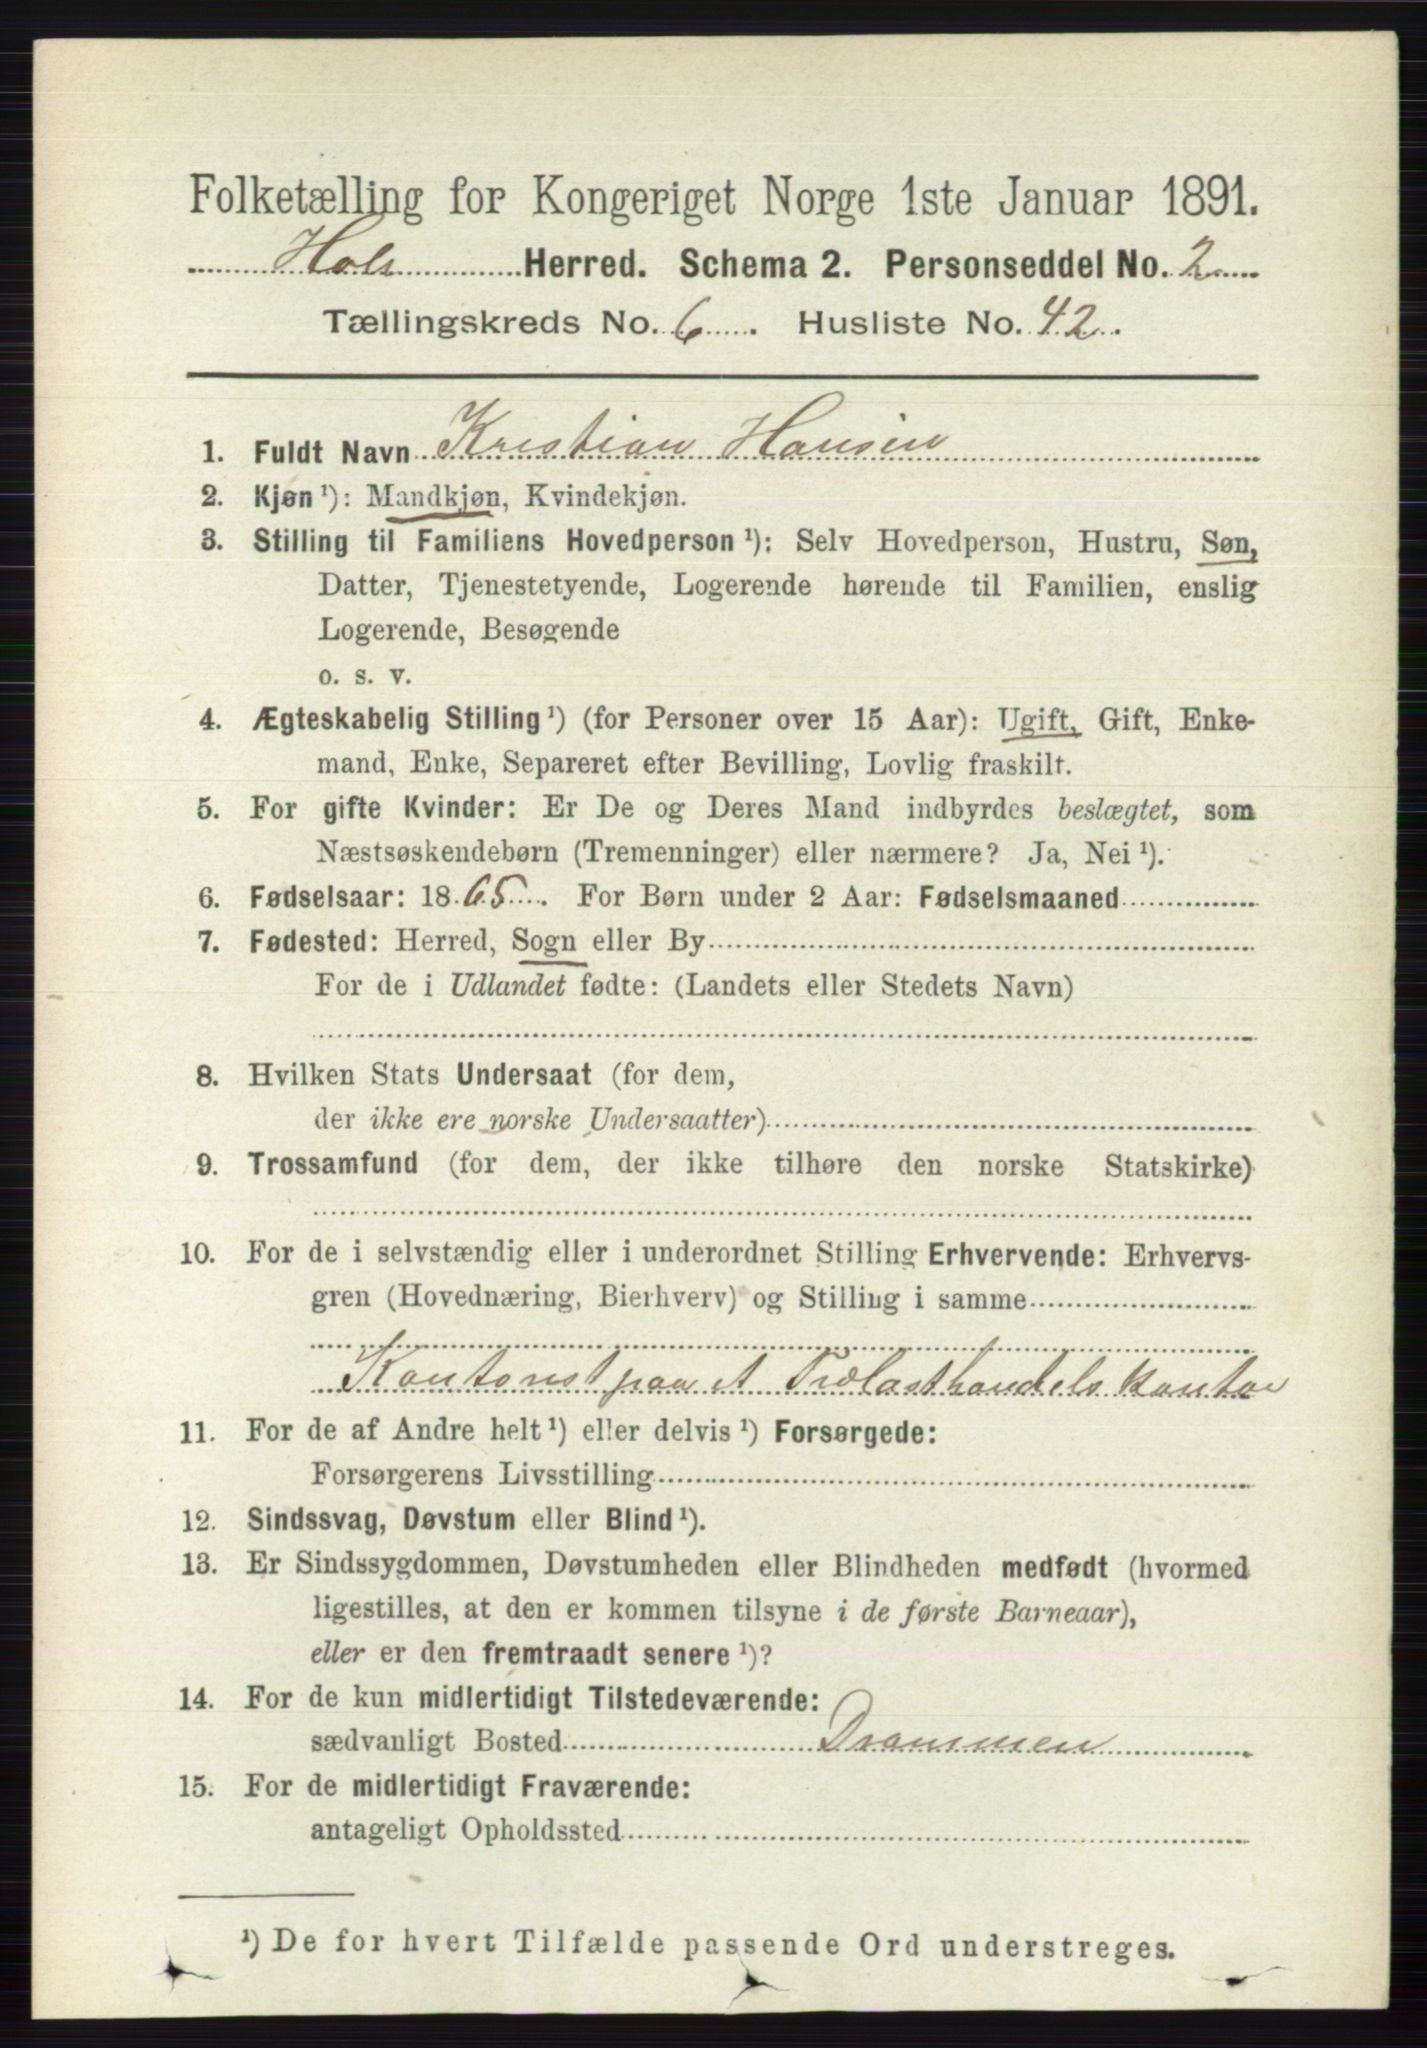 Folketælling for Kongeriget Norge 1ste Januar 1891.
Hole Herred. Schema 2. Personseddel No. 2
Tællingskreds No. 6. Husliste No. 42.
1. Fuldt Navn Kristian Hansen
2. Kjøn ¹): Mandkjøn, Kvindekjøn.
3. Stilling til Familiens Hovedperson ¹): Selv Hovedperson, Hustru, Søn,
Datter, Tjenestetyende, Logerende hørende til Familien, enslig
Logerende, Besøgende
o. s. v.
4. Ægteskabelig Stilling ¹) (for Personer over 15 Aar): Ugift, Gift, Enke-
mand, Enke, Separeret efter Bevilling, Lovlig fraskilt.
5. For gifte Kvinder: Er De og Deres Mand indbyrdes beslægtet, som
Næstsøskendebørn (Tremenninger) eller nærmere? Ja, Nei ¹).
6. Fødselsaar: 1865. For Børn under 2 Aar: Fødselsmaaned
7. Fødested: Herred, Sogn eller By
For de i Udlandet fødte: (Landets eller Stedets Navn)
8. Hvilken Stats Undersaat (for dem,
der ikke ere norske Undersaatter)
9. Trossamfund (for dem, der ikke tilhøre den norske Statskirke)
10. For de i selvstændig eller i underordnet Stilling Erhvervende: Erhvervs-
gren (Hovednæring, Bierhverv) og Stilling i samme
Kontorist paa et Trælasthandelskontor
11. For de af Andre helt ¹) eller delvis ¹) Forsørgede:
Forsørgerens Livsstilling
12. Sindssvag, Døvstum eller Blind ¹).
13. Er Sindssygdommen, Døvstumheden eller Blindheden medfødt (hvormed
ligestilles, at den er kommen tilsyne i de første Barneaar),
eller er den fremtraadt senere ¹)?
14. For de kun midlertidigt Tilstedeværende:
sædvanligt Bosted Drammen
15. For de midlertidigt Fraværende:
antageligt Opholdssted
¹) De for hvert Tilfælde passende Ord understreges.